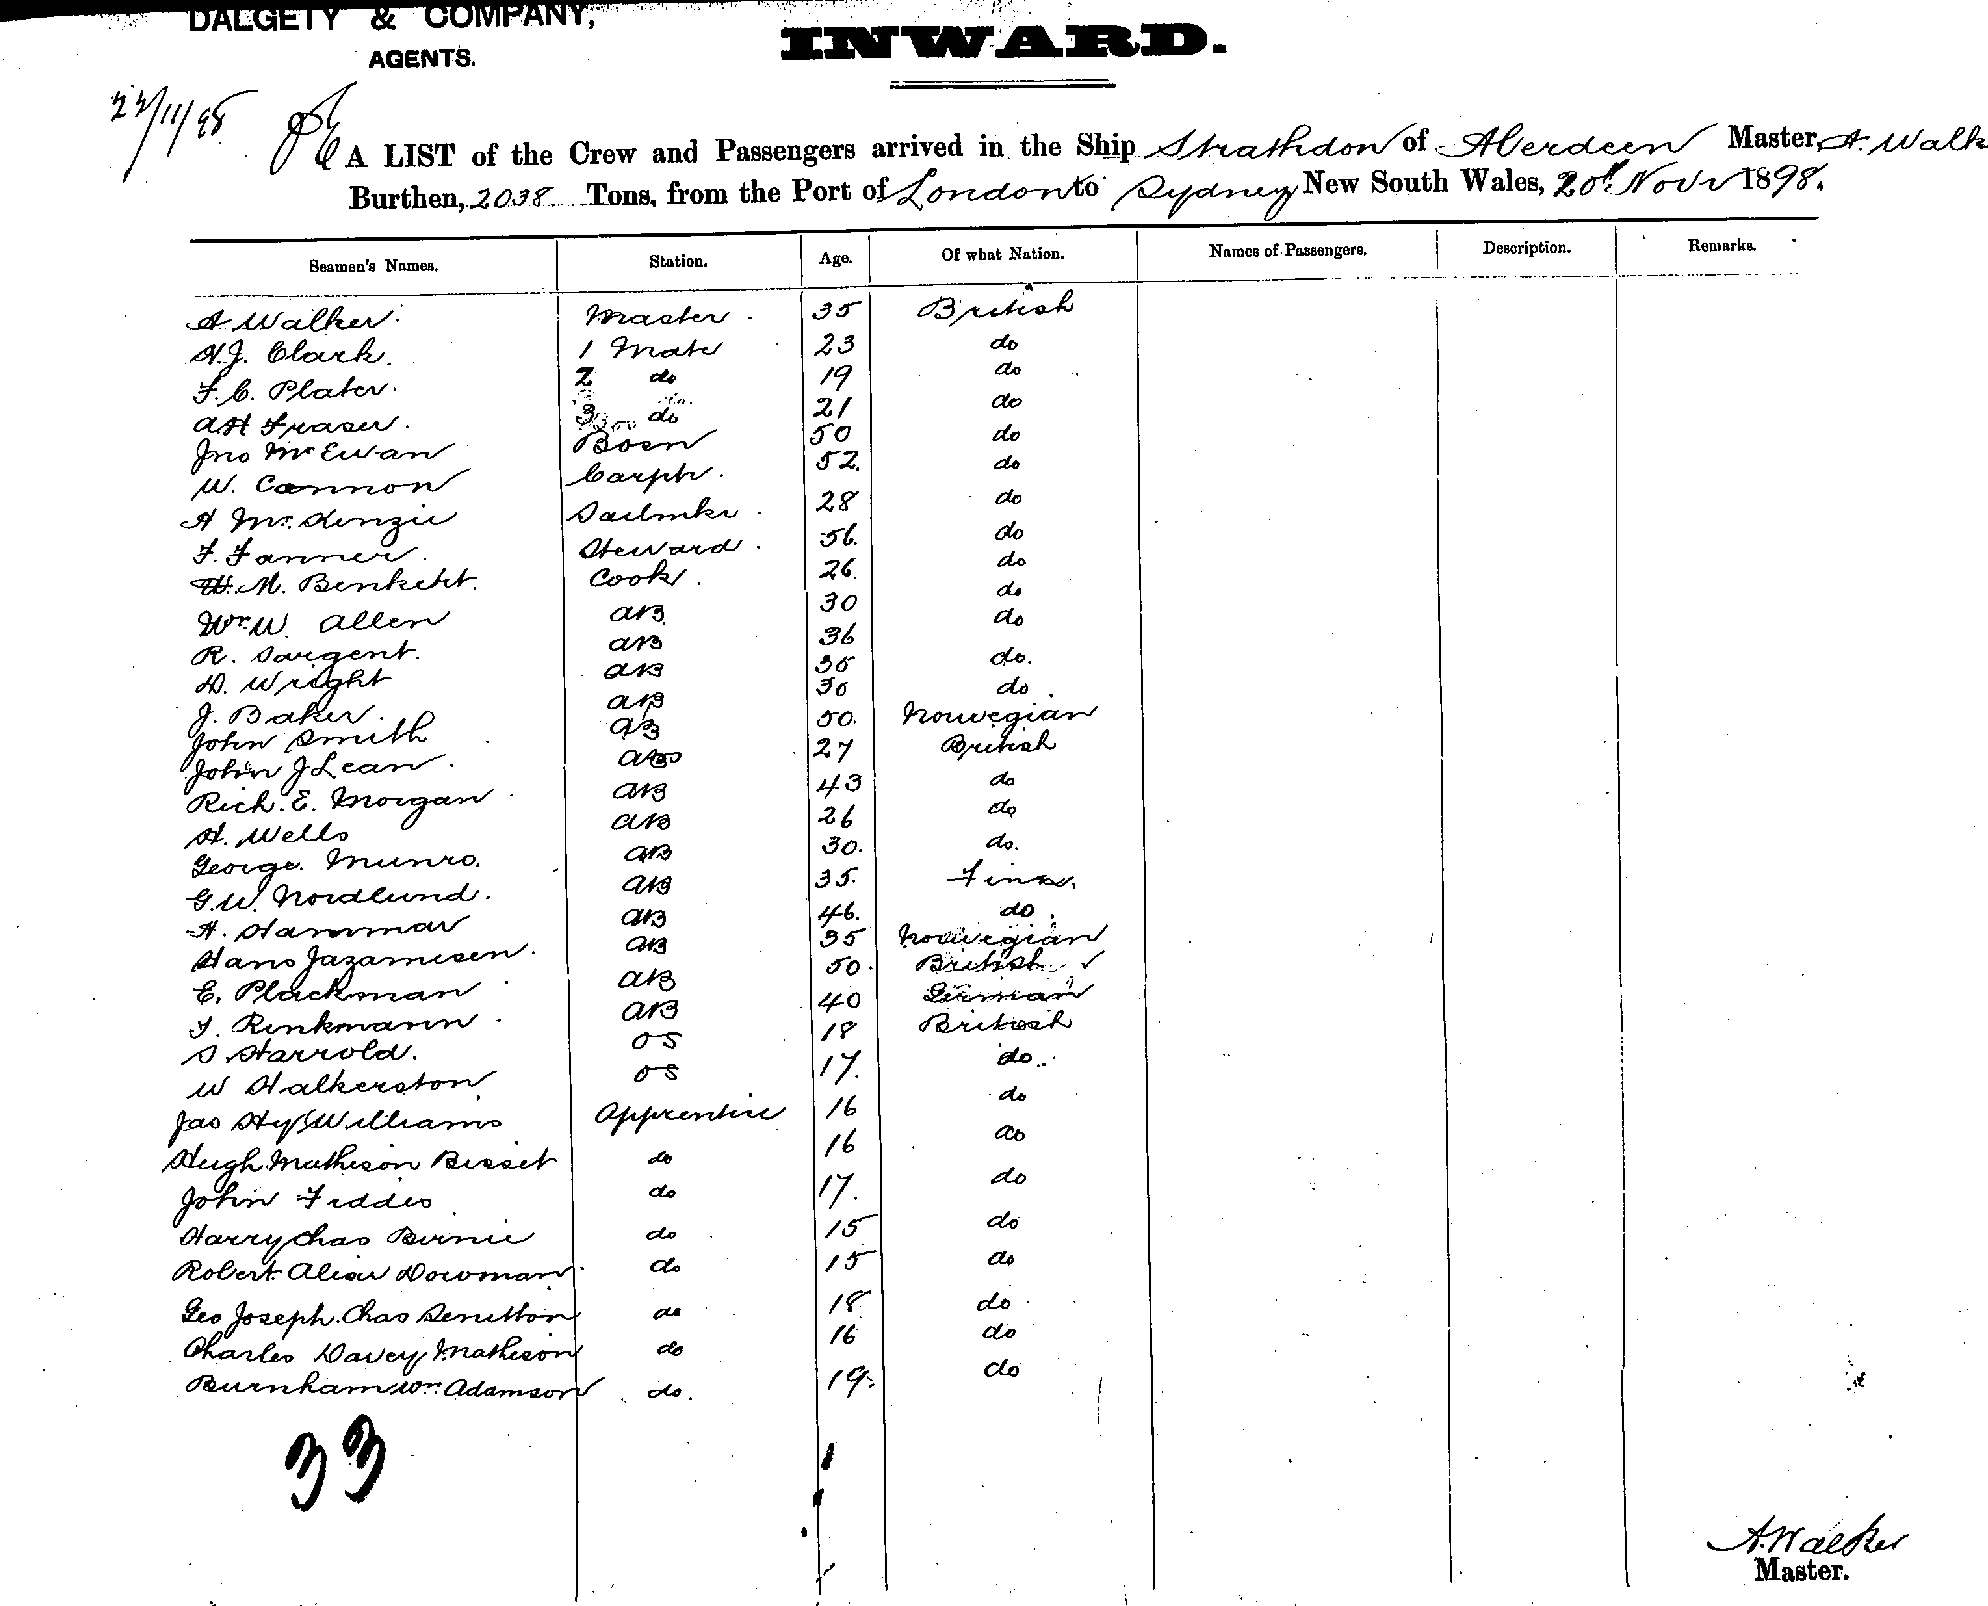 DALGETY & COMPANY,
AGENTS.
INWARD.
22/11/98
A LIST of the Crew and Passengers arrived in the Ship Strathdon of Aberdeen Master, A. Walk
Burthen, 2038 Tons, from the Port of London to Sydney New South Wales, 20th Novr 1898.
Seamen's Names. Station. Age. Of what Nation. Names of Passengers. Description. Remarks.
A Walker. Master. 35 British
A.J. Clark. 1 Mate 23 do
F. C. Plater. 2 do 19 do
A H Fraser. 3 do 21 do
Jno McEwan Bosn 50 do
W. Cannon Carptr. 52. do
A McKenzie Sailmkr. 28 do
F. Fanner. Steward. 56. do
H. M. Binkett. Cook. 26. do
Wm W. Allen AB 30 do
R. Sargent. AB 36 do
D. Wright AB 35 do.
J. Baker. AB 30 do.
John Smith AB 50. Norwegian
John J Lean. AB 27 British
Rich. E. Morgan AB 43 do
H. Wells AB 26 do
George Munro. AB 30. do.
G.W. Nordlund. AB 35. Finn.
A. Hammar AB 46. do.
Hans Jazamisen. AB 35 Norwegian
E. Plackman AB 50. British ✓
F. Rinkmann AB 40 German
S Harrold. OS 18 British
W Halkerston OS 17. do.
Jas Hy Williams Apprentice 16 do
Hugh Matheson Bisset do 16 do
John Fiddes do 17. do
Harry Chas Birnie do 15 do
Robert Alexr Dowman do 15 do
Geo Joseph Chas Senitton do 18 do
Charles Davey Matheson do 16 do
Burnham Wm Adamson do. 19. do
33
A. Walker
Master.